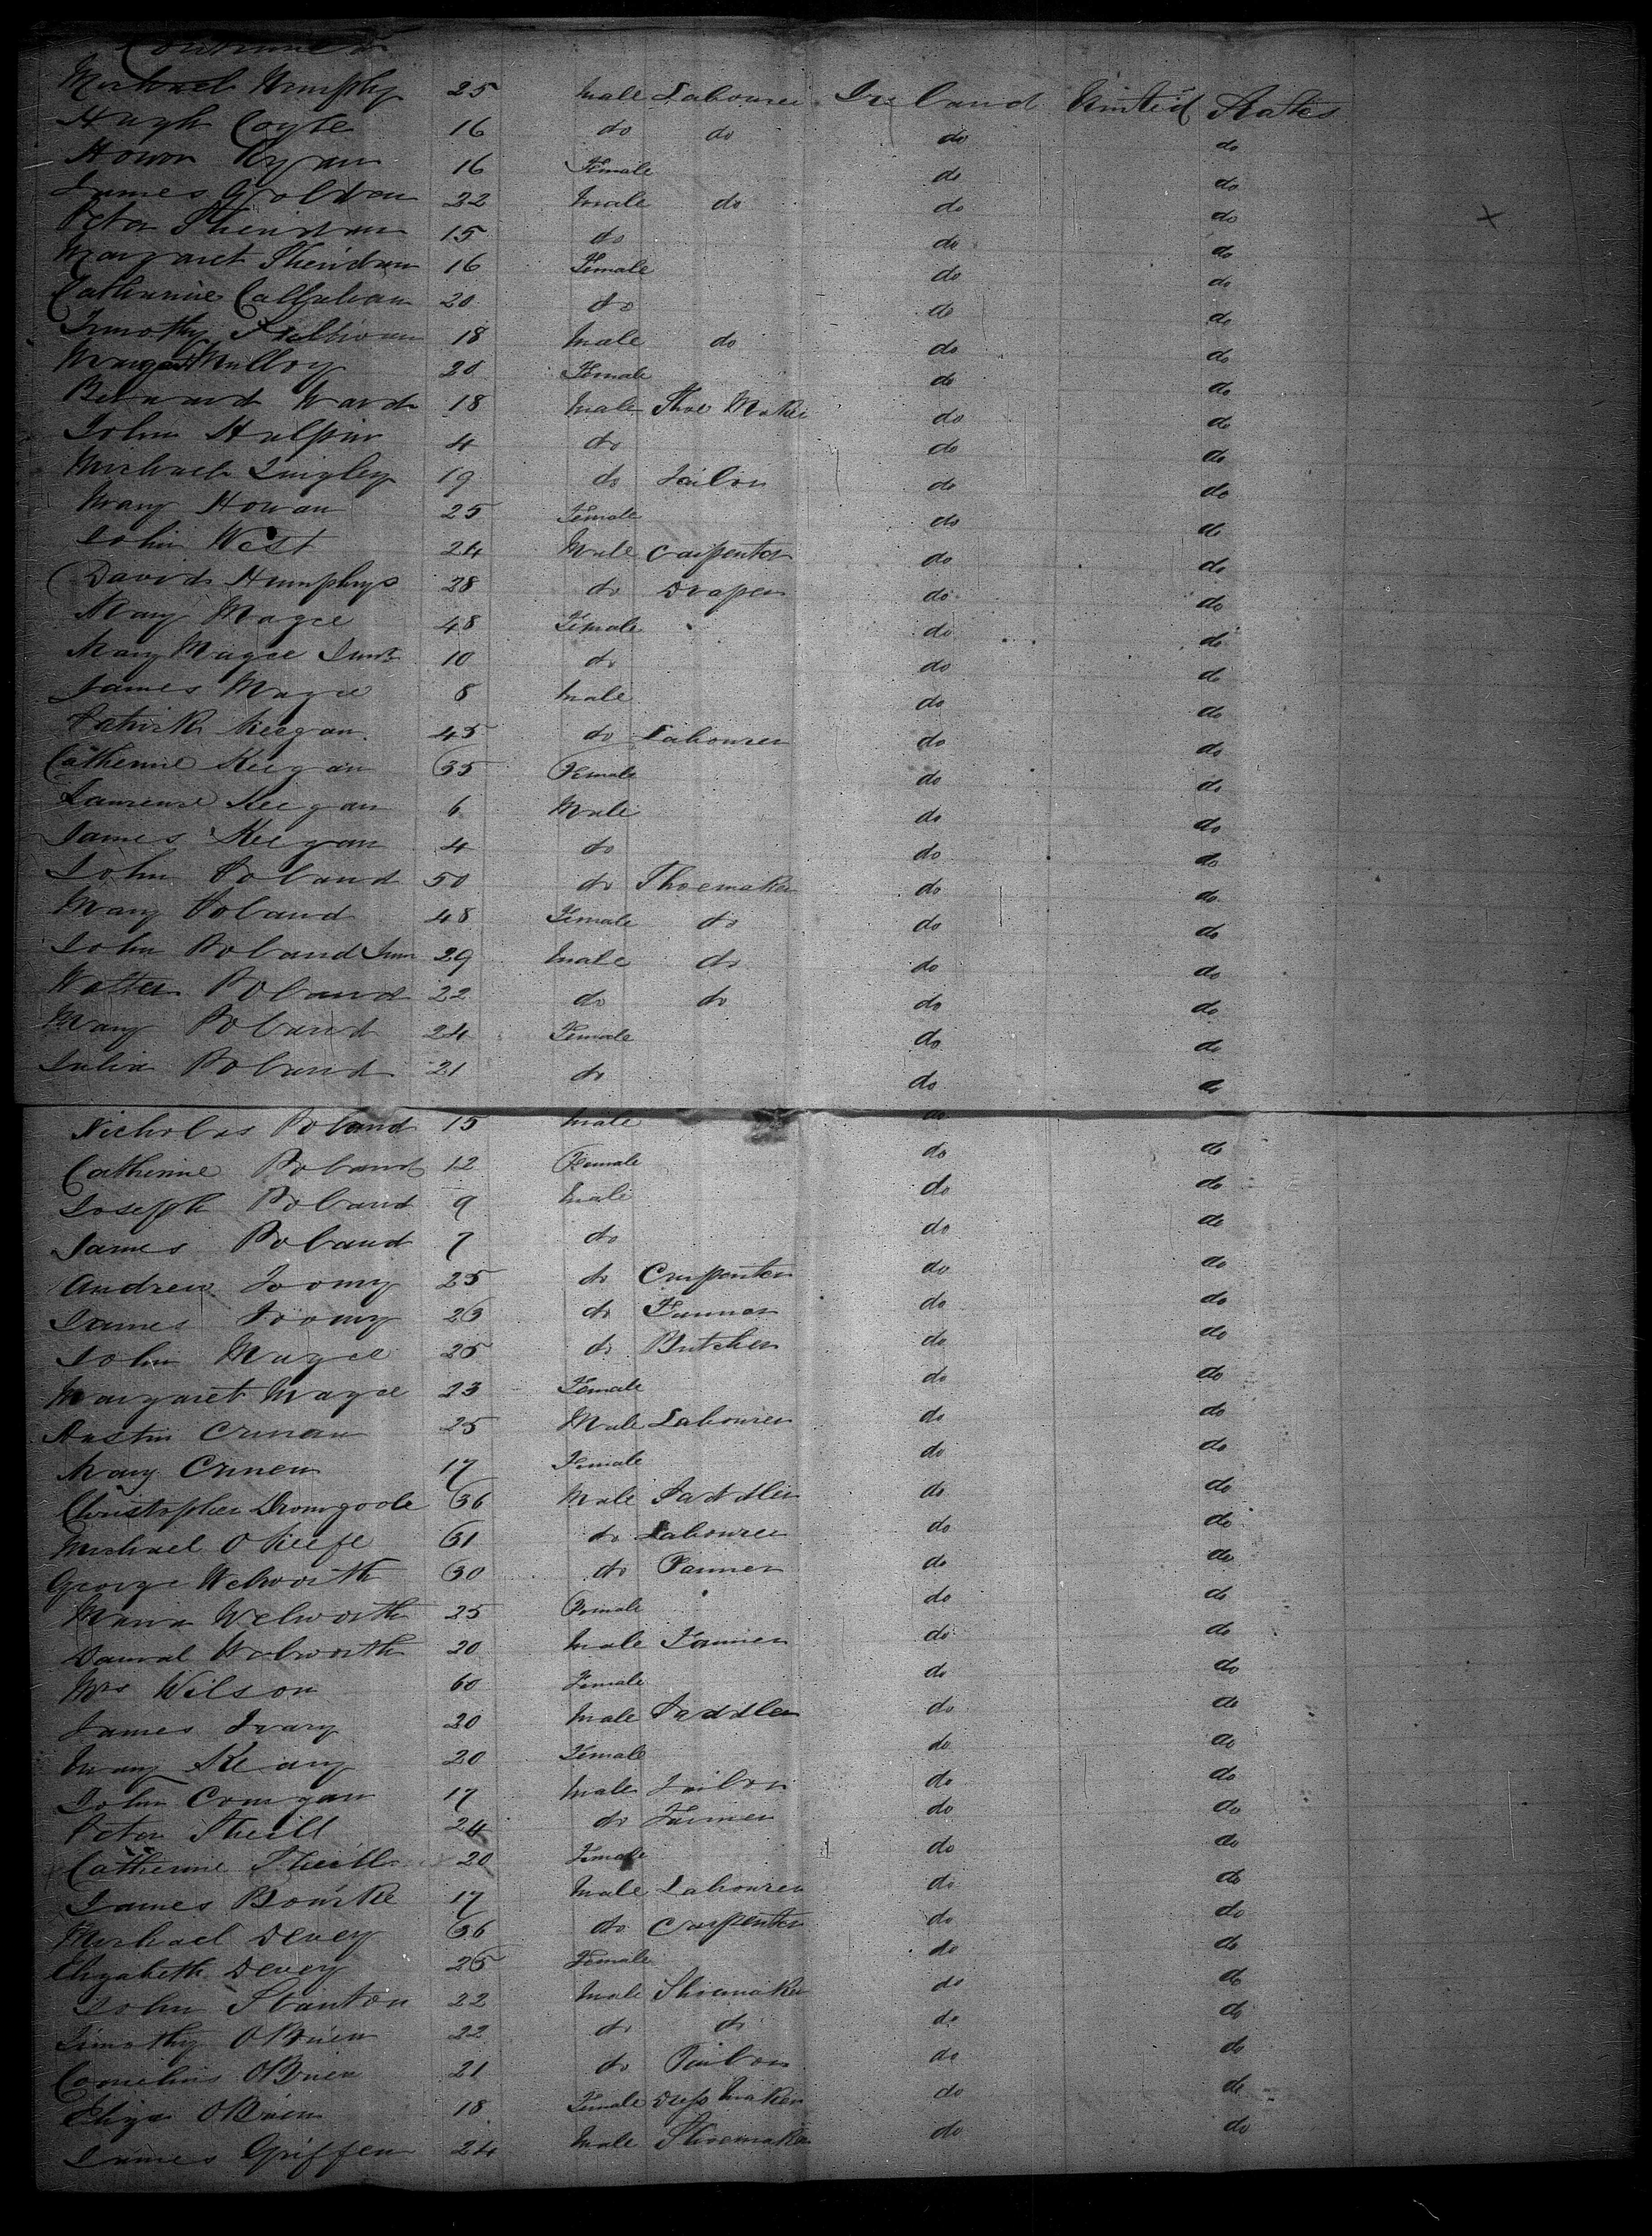 Continued
Michael Humphy 25 Male Labourer Ireland United States
Hugh Coyle 16 do do do do
Honor Ryan 16 Female do do
James Goldon 22 Male do do do
Peter Sheridan 15 do do do
Margaret Sheridan 16 Female do do
Catherine Callahan 20 do do do
Timothy Sullivan 18 Male do do do
Margaret Mulloy 20 Female do do
Bernard Ward 18 Male Shoe Maker do do
John Halpin 4 do do do
Michael Quigley 19 do Tailor do do
Mary Howan 25 Female do do
John West 24 Male Carpenter do do
David Humphrys 28 do Draper do do
Mary Magee 48 Female do do
Mary Magee Junr 10 do do do
James Magee 8 Male do do
Patrick Keegan 45 do Labourer do do
Catherine Keegan 35 Female do do
Laurence Keegan 6 Male do do
James Keegan 4 do do do
John Boland 50 do Shoemaker do do
Mary Boland 48 Female do do do
John Boland Junr 29 Male do do do
Walter Boland 22 do do do do
Mary Boland 24 Female do do
Julia Boland 21 do do do
Nicholas Boland 15 Male do
Catherine Boland 12 Female do do
Joseph Boland 9 Male do do
James Boland 7 do do do
Andrew Toomy 25 do Carpenter do do
James Toomy 23 do Farmer do do
John Magee 25 do Butcher do do
Margaret Magee 23 Female do do
Austin Crinan 25 Male Labourer do do
Mary Crinen 17 Female do do
Christopher Dromgoole 36 Male Saddler do do
Michael OKeefe 31 do Labourer do do
George Welworth 30 do Farmer do do
Maria Welworth 25 Female do do
Samual Welworth 20 Male Farmer do do
Mrs Wilson 60 Female do do
James Ivary 20 Male Saddler do do
Mary Keary 20 Female do do
John Corrigan 17 Male Tailor do do
Peter Sheill 24 do Farmer do do
Catherine Sheill 20 Female do do
James Bourke 17 Male Labourer do do
Michael Devey 36 do Carpenter do do
Elizabeth Devey 25 Female do do
John Stanton 22 Male Shoemaker do do
Timothy OBrien 22 do do do do
Cornelius OBrien 21 do Tailor do do
Eliza OBrien 18 Female Dress Maker do do
James Griffen 24 Male Shoemaker do do